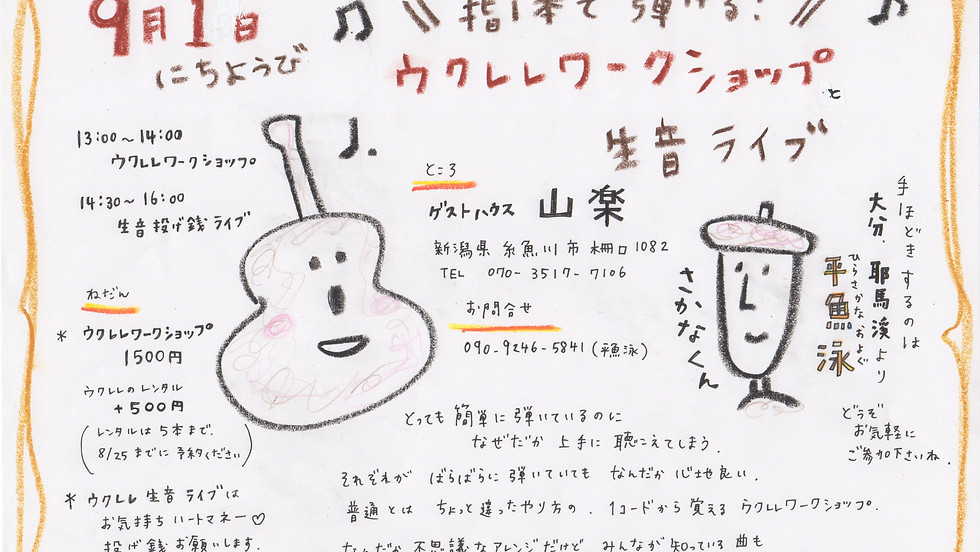 9月1日
にちようび
指1本で弾ける!
ウクレレワークショップ
と
生音ライブ
13:00〜14:00
ウクレレワークショップ
14:30〜16:00
生音投げ銭ライブ
ねだん
* ウクレレワークショップ
1500円
ウクレレのレンタル
+500円
(レンタルは5本まで.
8/25までに予約ください)
* ウクレレ生音ライブは
お気持ちハートマネー♡
投げ銭お願いします.
ところ
ゲストハウス 山楽
新潟県 糸魚川市 柵口1082
TEL 070-3517-7106
お問合せ
090-9246-5841(平魚泳)
手ほどきするのは
大分、耶馬溪より
平魚泳
ひらさかなおよぐ
さかなくん
どうぞ
お気軽に
ご参加下さいね.
とっても簡単に弾いているのに
なぜだか上手に聴こえてしまう.
それぞれが ばらばらに弾いていても なんだか心地良い.
普通とは ちょっと違ったやり方の、1コードから覚えるウクレレワークショップ.
なんだか不思議なアレンジだけど みんなが知っている曲も